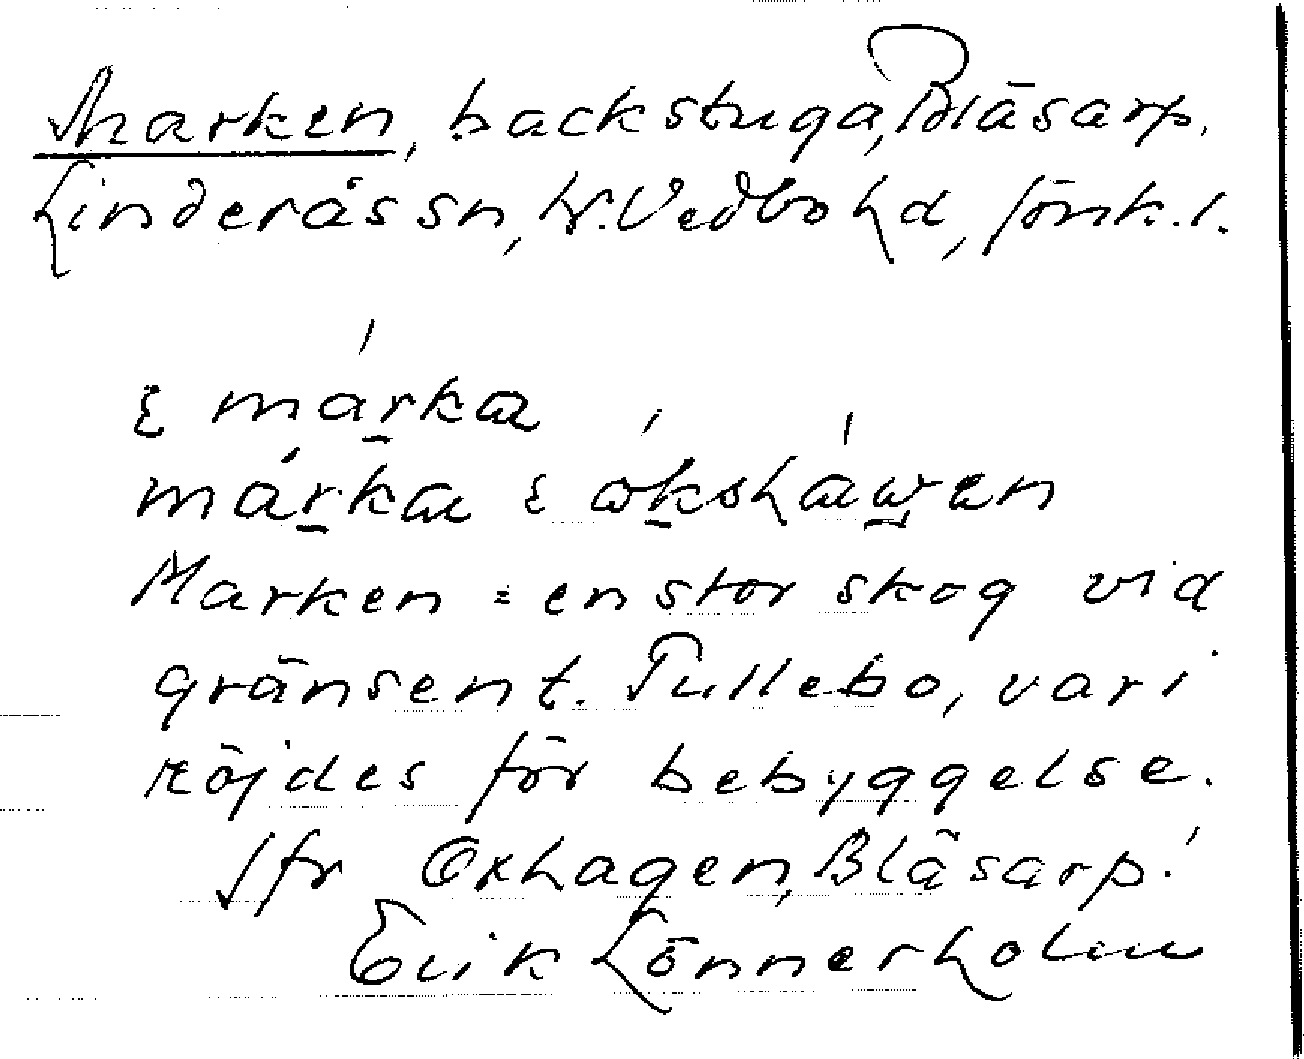 Marken, backstuga, Bläsarp,
Linderås sn, N. Vedbo hd, Jönk. l.
i marka
marka i okshawen
Marken = en stor skog vid
gränsen t. Tullebo, vari
röjdes för bebyggelse.
Jfr Oxhagen, Bläsarp!
Erik Lönnerholm